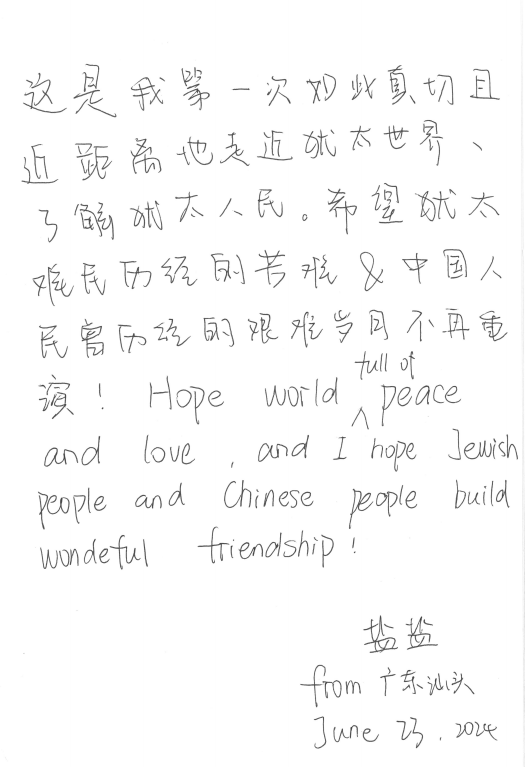 这是我第一次如此真切且
近距离地走近犹太世界、
了解犹太人民。希望犹太
难民历经的苦难&中国人
民曾历经的艰难岁月不再重
演！Hope world full of peace
and love, and I hope Jewish
people and Chinese people build
wondeful friendship!
盐盐
from 广东汕头
June 23, 2024